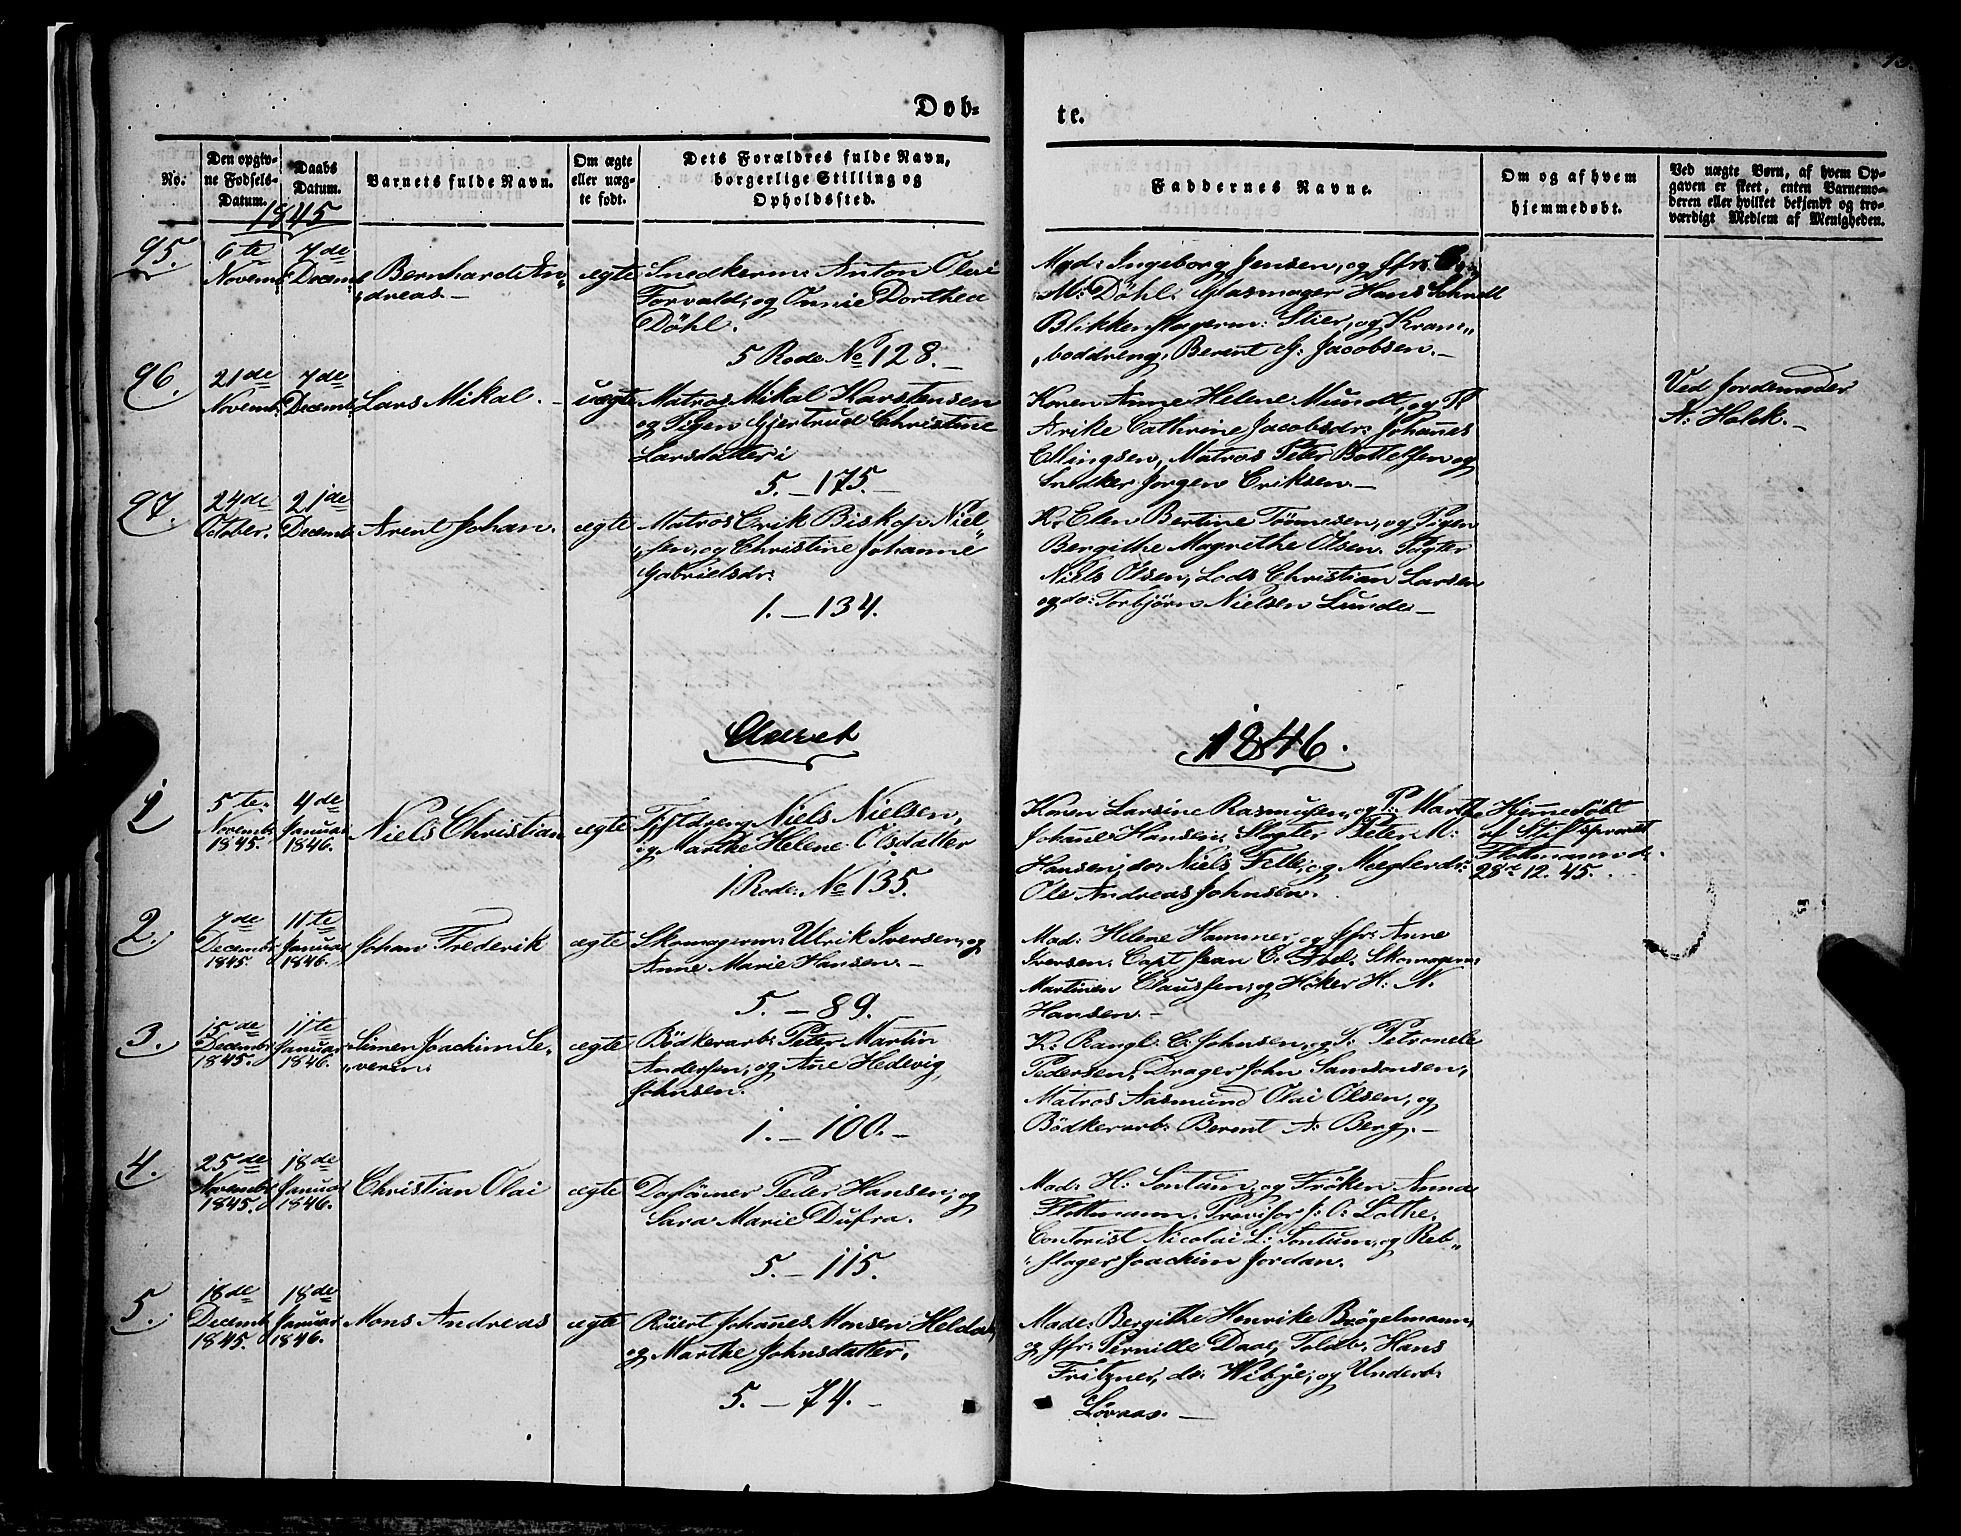 Døb-
te.
No.
Den opgiv-
ne Fødsels-
Datum.
Daabs
Datum.
Barnets fulde Navn.
Om ægte
eller uæg-
te født.
Dets Forældres fulde Navn,
borgerlige Stilling og
Opholdssted.
Faddernes Navne.
Om og af hvem
hjemmedøbt.
Ved uægte Børn, af hvem Op-
gaven er skeet, enten Barnemo-
deren eller hvilket bekjendt og tro-
værdigt Medlem af Menigheden.
1845
95.
6te
Novemb:
7de
Decemb:
Bernhard An-
dreas.
ægte
Snedkerm: Anton Olai
Torvald, og Onnie Dorthea
Döhl.
5 Rode No 128.
Mad: Ingeborg Jensen, og Jfr:
M: Döhl. Glasmager Hans Schmidt
Blikkenslagerm: Stier, og Kram-
boddreng, Berent G: Jacobsen.
96.
21de
Novemb:
7de
Decemb:
Lars Mikal.
uægte
Matros Mikal Karstensen
og Pigen Gjertrud Christine
Larsdatter
5. - 175.
Konen Anne Helene Mundt, og P
Arike Cathrine Jacobsdr: Johanes
Ellingsen, Matros Peter Bottelsen og
Snedker Jørgen Eriksen.
Ved Jordemoder
A: Holck.
97.
24de
October.
21de
Decemb:
Arent Johan.
ægte
Matros Erik Biskop Niel-
sen, og Christine Johanne
Gabrielsdr:
1. - 134.
K: Elen Bertine Tönnesen, og Pigen
Bergithe Magrethe Olsen. Slagter
Niels Olsen, Lods Christian Larsen
og do: Torbjörn Nielsen Lunde.
Aaret
1846.
1
5te
Novemb:
1845.
4de
Januar
1846.
Niels Christian
ægte
Niels Nielsen,
og Marthe Helene Olsdatter
1 Rode. No 135.
Konen Larsine Rasmussen, og P: Marthe
Johane Hansen, Slagter Peter M:
Hansen, do: Niels Felle, og Meglerds:
Ole Andreas Johnsen.
Hjemedöbt
af Stiftsprovst
Flottmann d.
28de 12. 45.
2.
7de
Decemb:
1845.
11te
Januar
1846.
Johan Frederik
ægte
Skomagerm: Ulrik Iversen, og
Anne Marie Hansen.
5. - 89.
Mad: Helene Hammer, og Jfr: Anne
Iversen. Capt Jean C: Abel. Skomagerm:
Martinen Claussen, og Höker H: N.
Hansen.
3.
15de
Decemb:
1845.
11te
Januar
1846.
Simen Joachim Se-
verin.
ægte
Bödkerarb: Peter Martin
Andersen, og Ane Hedevig
Johnsen.
1. - 100.
K: Rangl: C: Johnsen, og P: Petronele
Pedersen; Drager John Samsonsen,
Matros Aasmund Olai Olsen, og
Bödkerarb: Berent A: Berg.
4.
25de
Novembr
1845.
18de
Januar
1846.
Christian Olai
ægte
Daglönner Peder Hansen, og
Sara Marie Dufra.
5. - 115.
Mad: H: Sontum, og Fröken Anna
Flottmann. Provisor J: C: Lothe,
Contorist Nicolai L: Sontum, og Reb-
slager Joachim Jordan.
5.
18de
Decemb:
1845.
18de
Januar
1846.
Mons Andreas
ægte
Johanes Monsen Heldal,
og Marthe Johnsdatter.
5. - 74.
Made: Bergithe Henrike Brögelmann,
og Jfr: Pernille Daae, Toldb: Hans
Fritzner, do: Wibye, og Underb:
Lövaas.